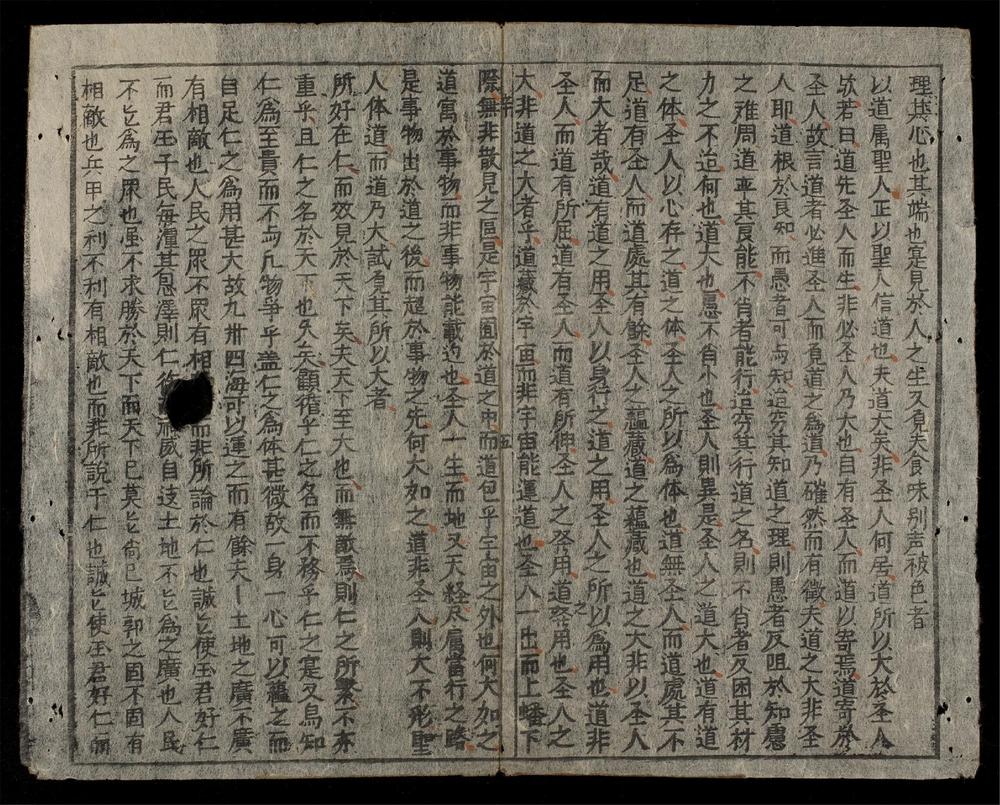 理其心也其端也寔見於人之生又見夫食味别声被色者
以道属聖人正以聖人信道也夫道大矣非圣人何居道所以大於圣人
欤若曰道先圣人而生非必圣人乃大也自有圣人而道以寄焉道寄於
圣人故言道者必進圣人而見道之爲道乃確然而有徵夫道之大非圣
人耶道根於良知而愚者可与知迨穷其知道之理則愚者反阻於知愚
之难周道平其良能不肖者能行迨穷其行道之名則不肖者反困其材
力之不迨何也道大也愚不肖小也圣人則異是圣人之道大也道有道
之体圣人以心存之道之体圣人之所以爲体也道無圣人而道處其不
足道有圣人而道處其有餘圣人之蘊蔵道之蘊蔵也道之大非以圣人
而大者哉道有道之用圣人以身行之道之用圣人之所以爲用也道非
圣人而道有所屈道有圣人而道有所伸圣人之發用道之發用也圣人之
大非道之大者乎道藏於宇宙而非宇宙能運道也圣人一出而上蟠下
際無非散見之區是宇宙囿於道之中而道包乎宇宙之外也何大如之
道寓於事物而非事物能載道也圣人一生而地义天経尽属當行之路
是事物出於道之後而超於事物之先何大如之道非圣人則大不形聖
人体道而道乃大試見其所以大者
所好在仁而效見於天下矣夫天下至大也而無敵焉則仁之所繫不亦
重乎且仁之名於天下也久矣顧循乎仁之名而不務乎仁之寔又烏知
仁爲至貴而不与凡物爭乎盖仁之爲体甚微故一身一心可以蘊之而
自足仁之爲用甚大故九州四海可以運之而有餘夫土地之廣不廣
有相敵也人民之眾不眾有相而非所論於仁也誠使国君好仁
而君国子民每濡其恩澤則仁威自這土地不爲之廣也人民
不爲之眾也虽不求勝於天下而天下已莫尚已城郭之固不固有
相敵也兵甲之利不利有相敵也而非所說于仁也誠使国君好仁
辛
五